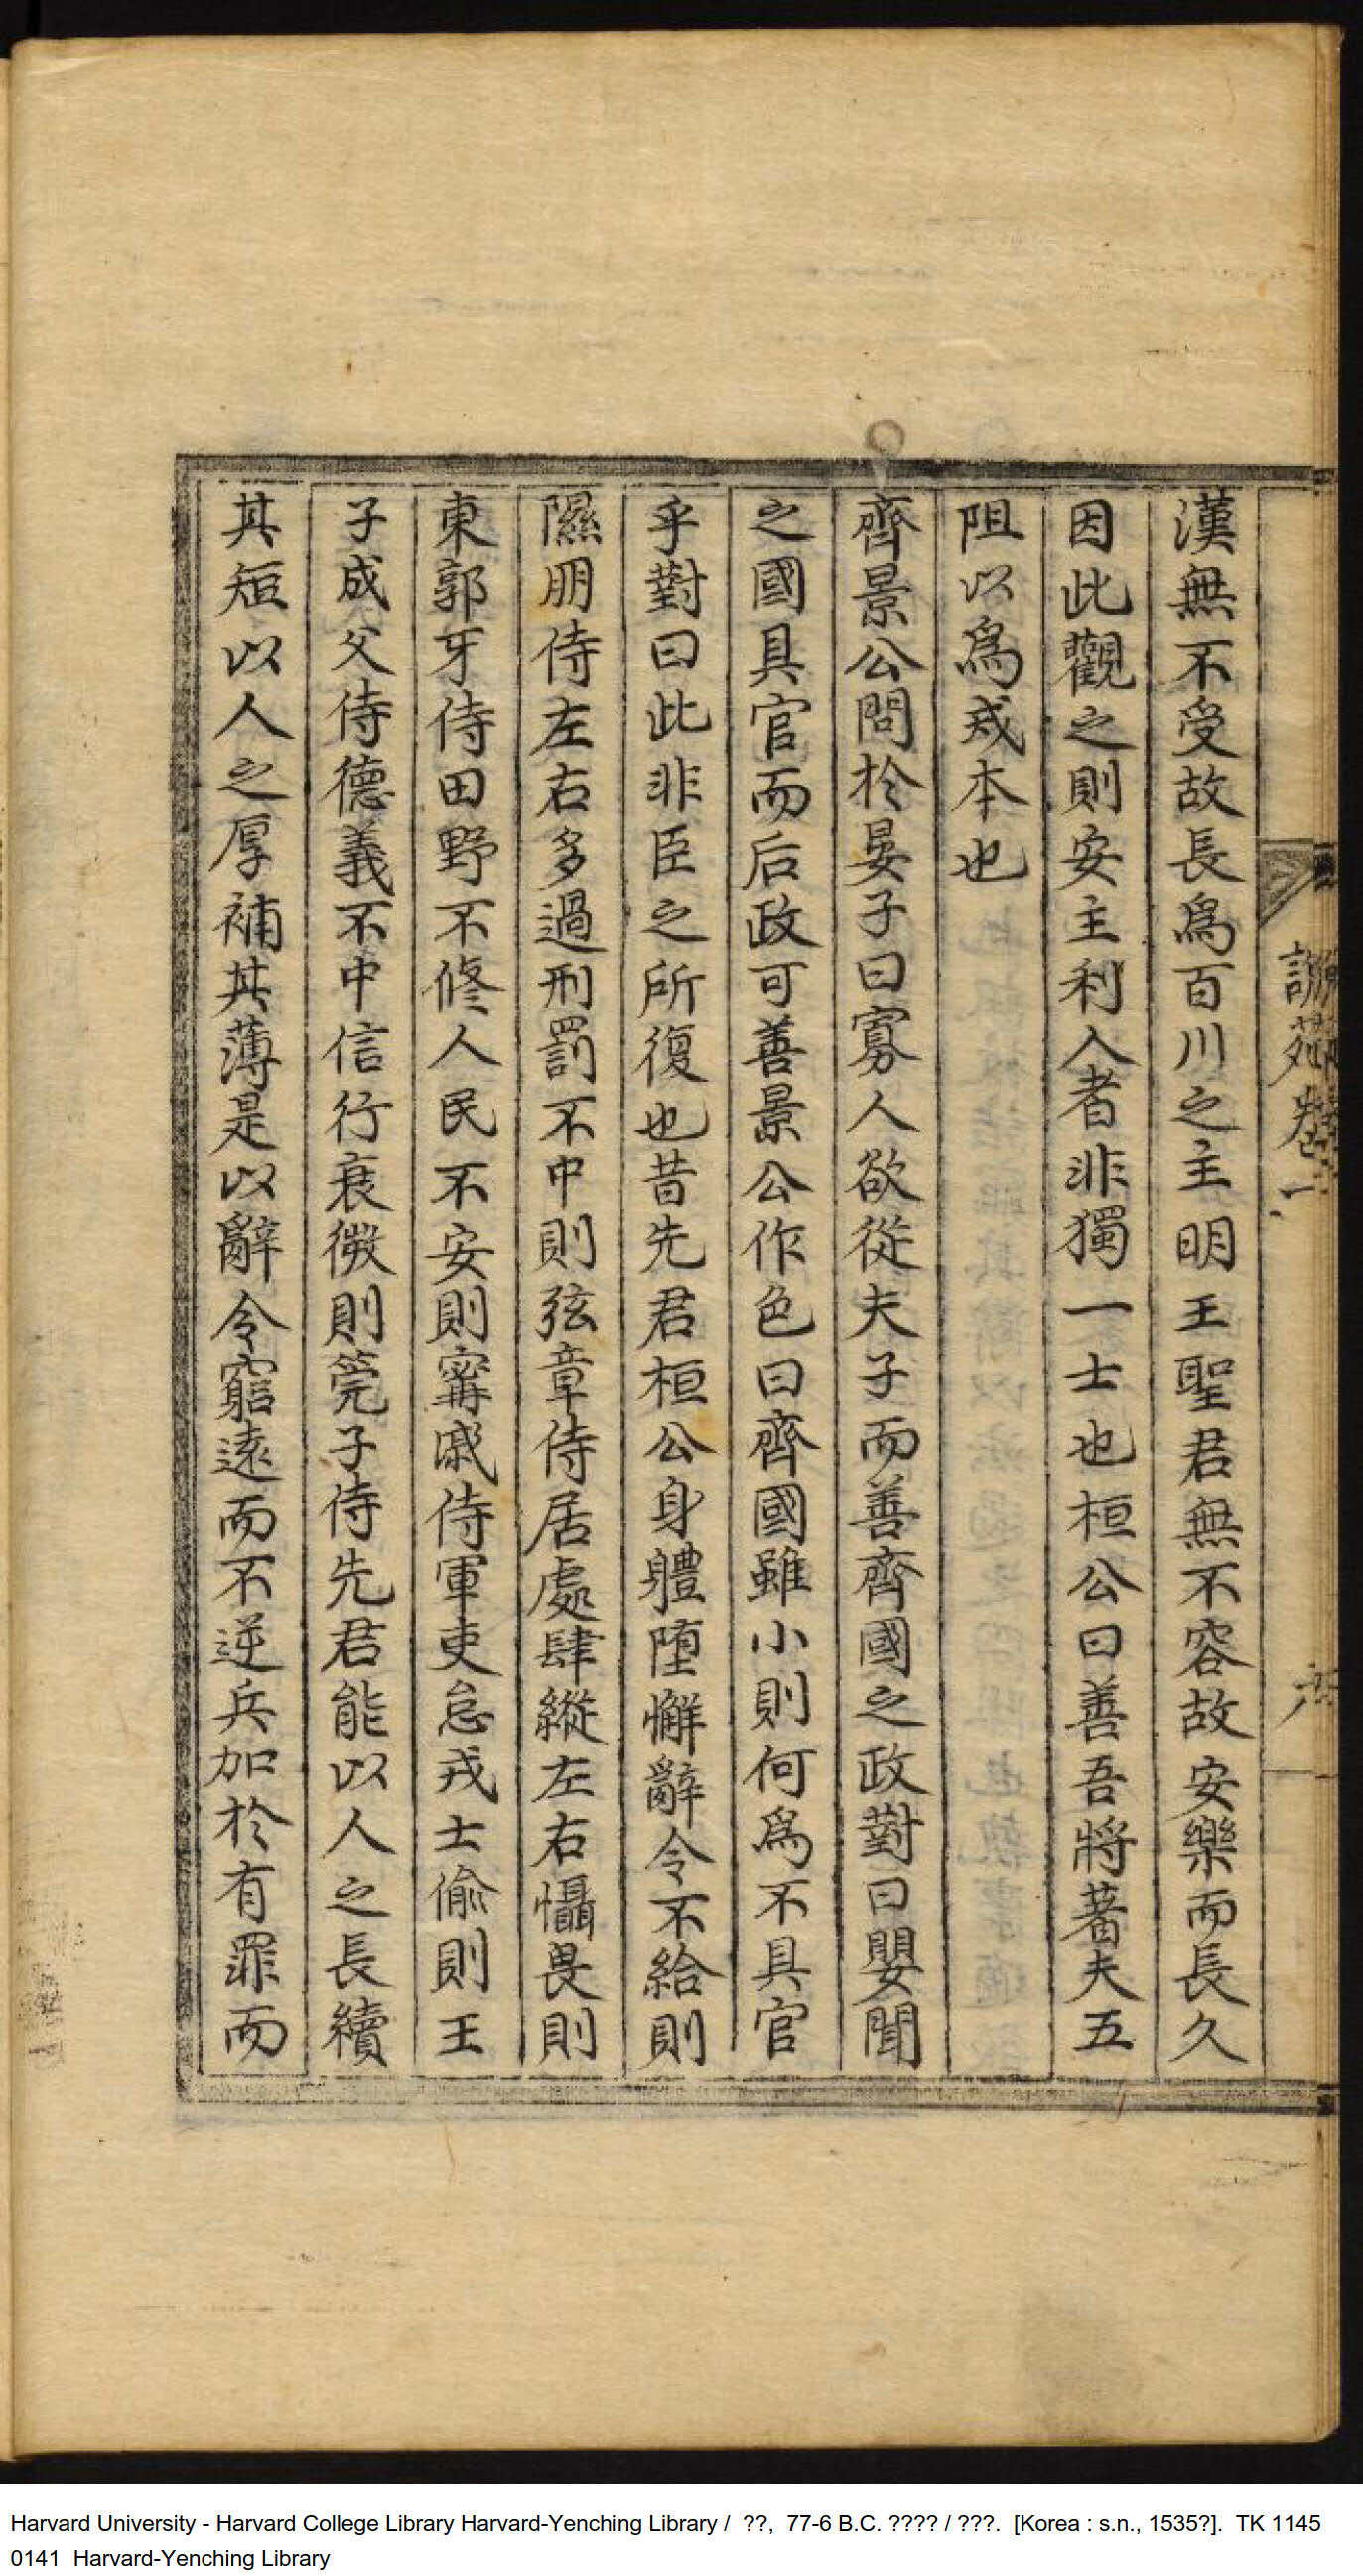 漢無不受故長爲百川之主明王聖君無不容故安樂而長久
因此觀之則安主利人者非獨一士也桓公曰善吾將著夫五
阻以爲戒本也
齊景公問於晏子曰寡人欲從夫子而善齊國之政對曰嬰聞
之國具官而后政可善景公作色曰齊國雖小則何爲不具官
乎對曰此非臣之所復也昔先君桓公身體堕懈辭令不給則
隰朋侍左右多過刑罰不中則弦章侍居處肆縱左右懾畏則
東郭牙侍田野不修人民不安則甯戚侍軍吏怠戎士偷則王
子成父侍德義不中信行衰微則筦子侍先君能以人之長續
其短以人之厚補其薄是以辭令窮遠而不逆兵加於有罪而
卷一
Harvard University - Harvard College Library Harvard-Yenching Library / ??, 77-6 B.C. ???? / ???. [Korea : s.n., 1535?]. TK 1145
0141 Harvard-Yenching Library